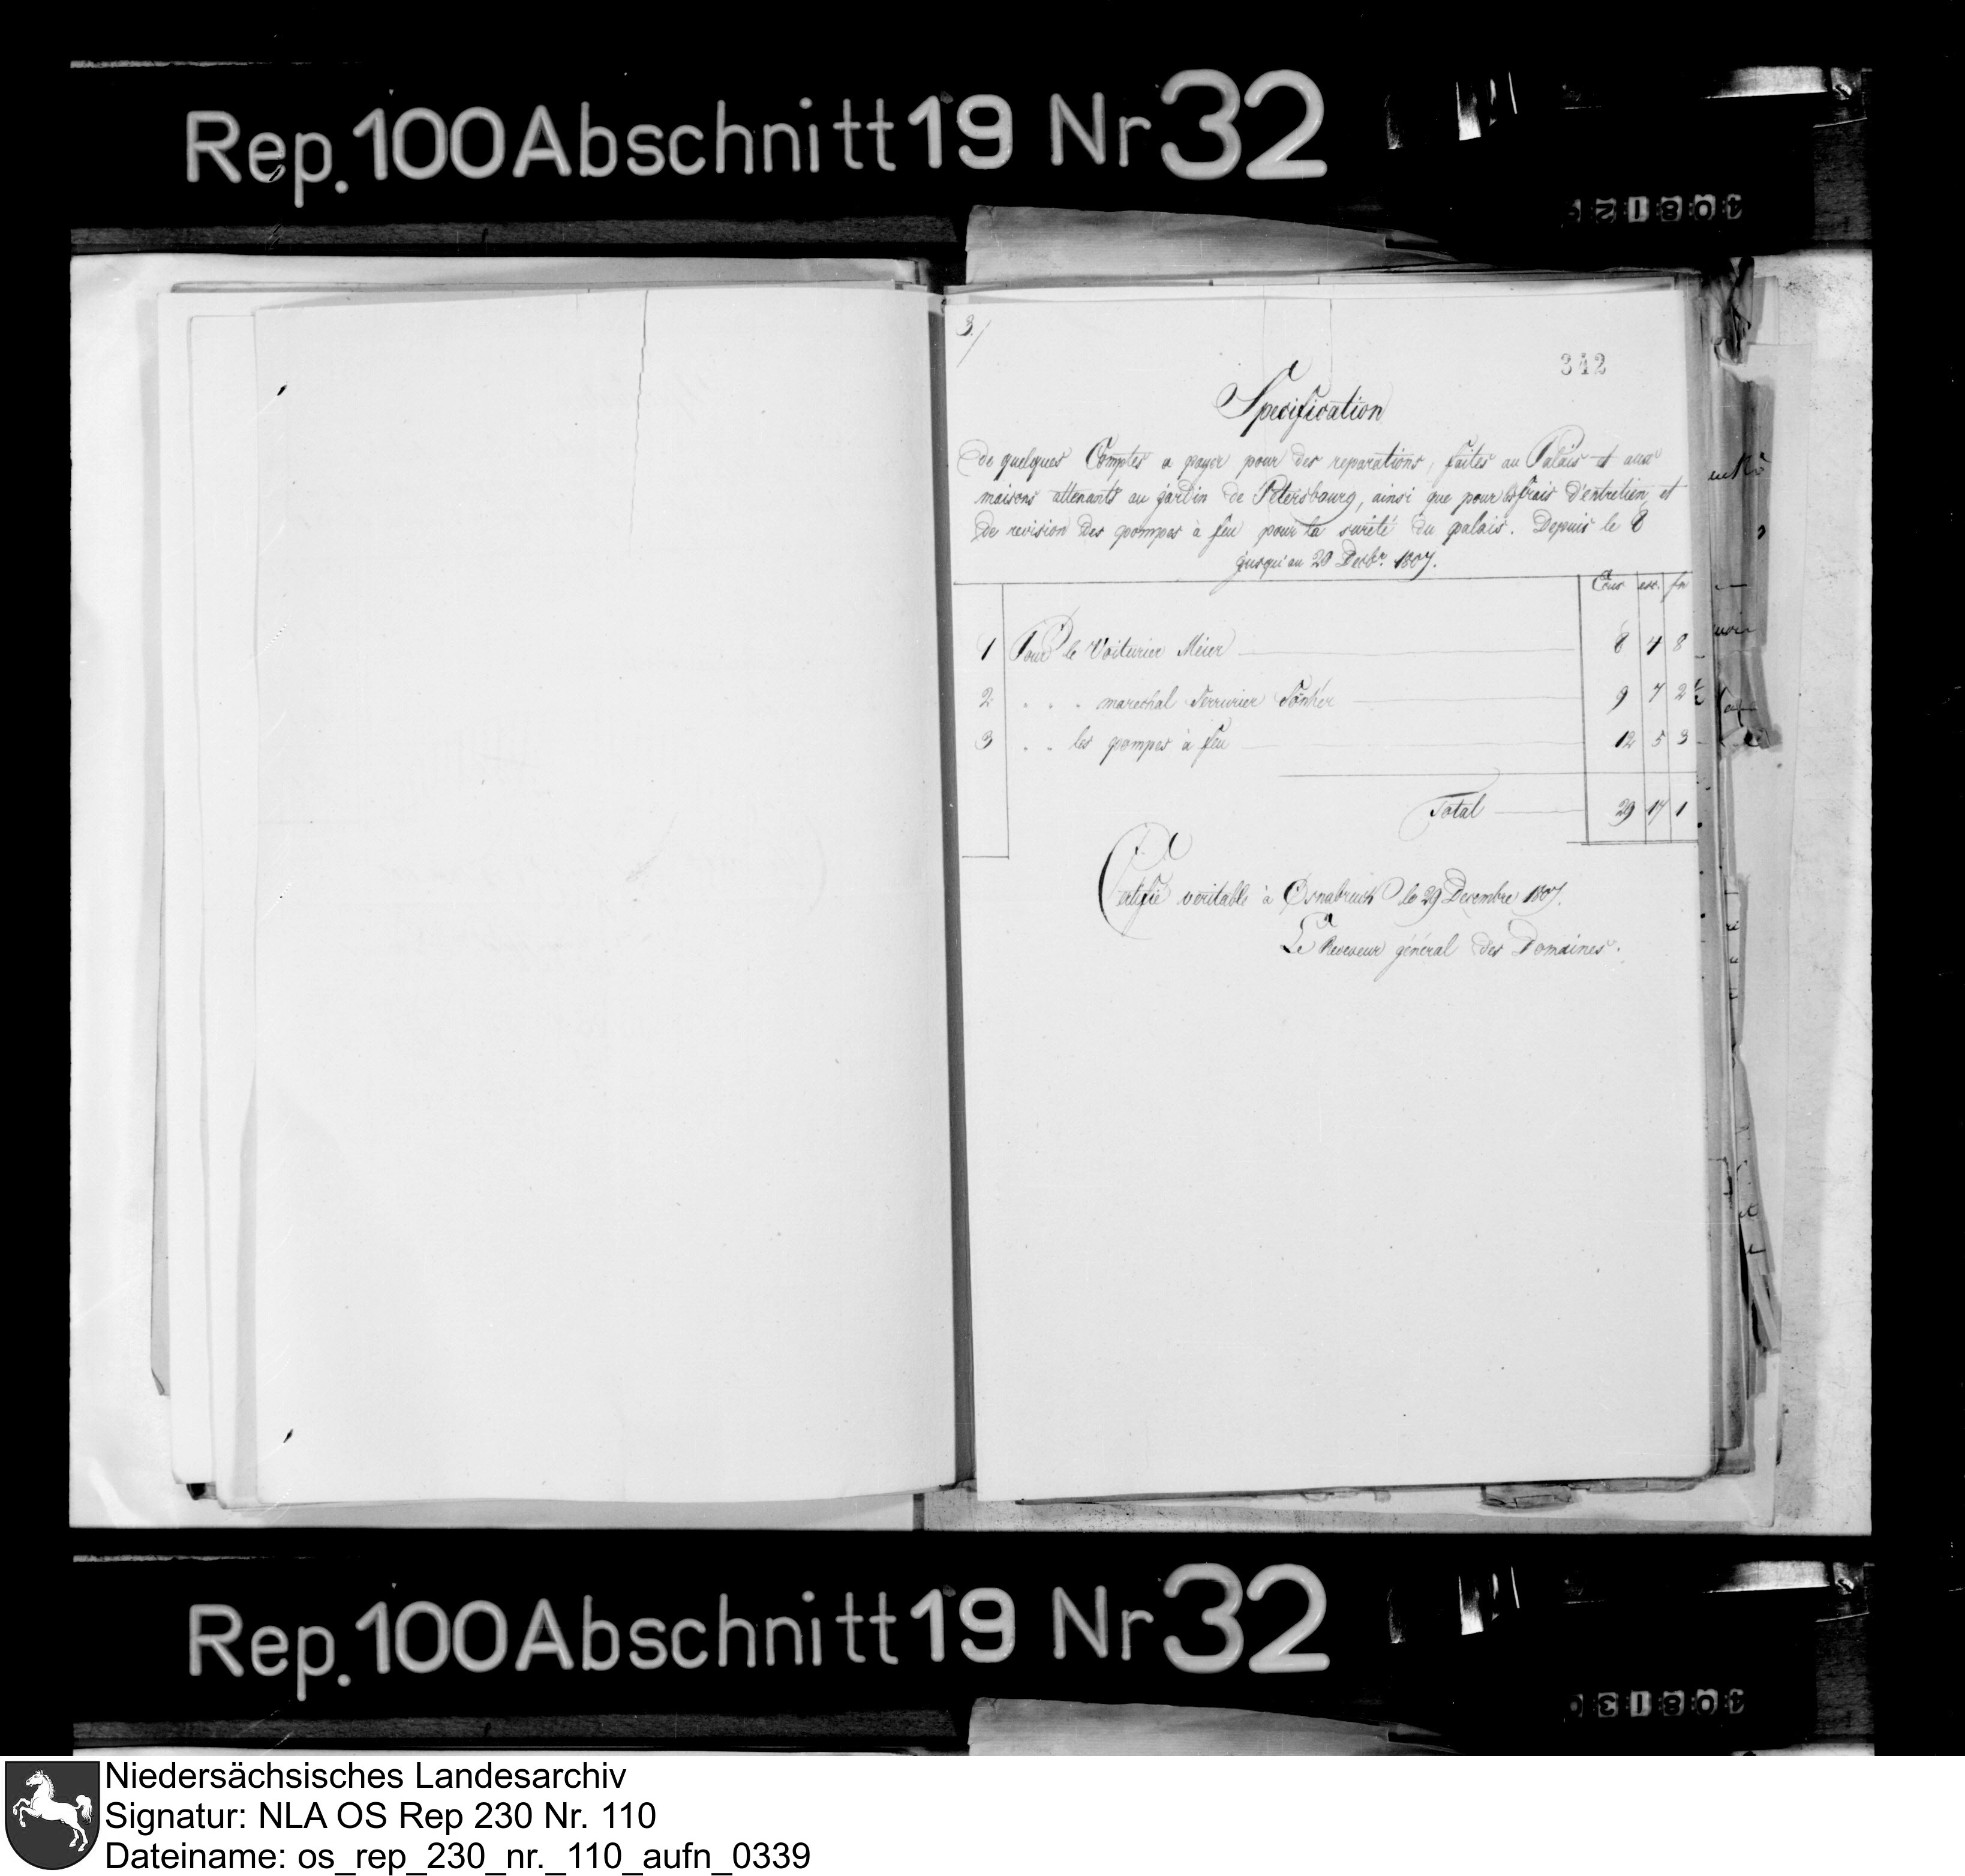 Rep. 100 Abschnitt 19 Nr 32
3/
342
Specification
de quelques Comptes a payer pour des reparations, faites au Palais et aux
maisons attenants au jardin de Petersbourg, ainsi que pour les frais d'entretien et
de revision des pompes à feu pour la sureté du palais. Depuis le 8
jusqu'au 29 Decbr. 1807.
ecus esc. fn
1 Pour le Voiturier Meier 8 4 8
2 . . . marechal Serrurier 9 7 2½
3 . . les pompes à feu 12 5 3
Total 29 17 1
Certifié veritable à Osnabruck le 29 Decembre 1807.
Le Receveur général des Domaines.
Rep. 100 Abschnitt 19 Nr 32
Niedersächsisches Landesarchiv
Signatur: NLA OS Rep 230 Nr. 110
Dateiname: os_rep_230_nr._110_aufn_0339